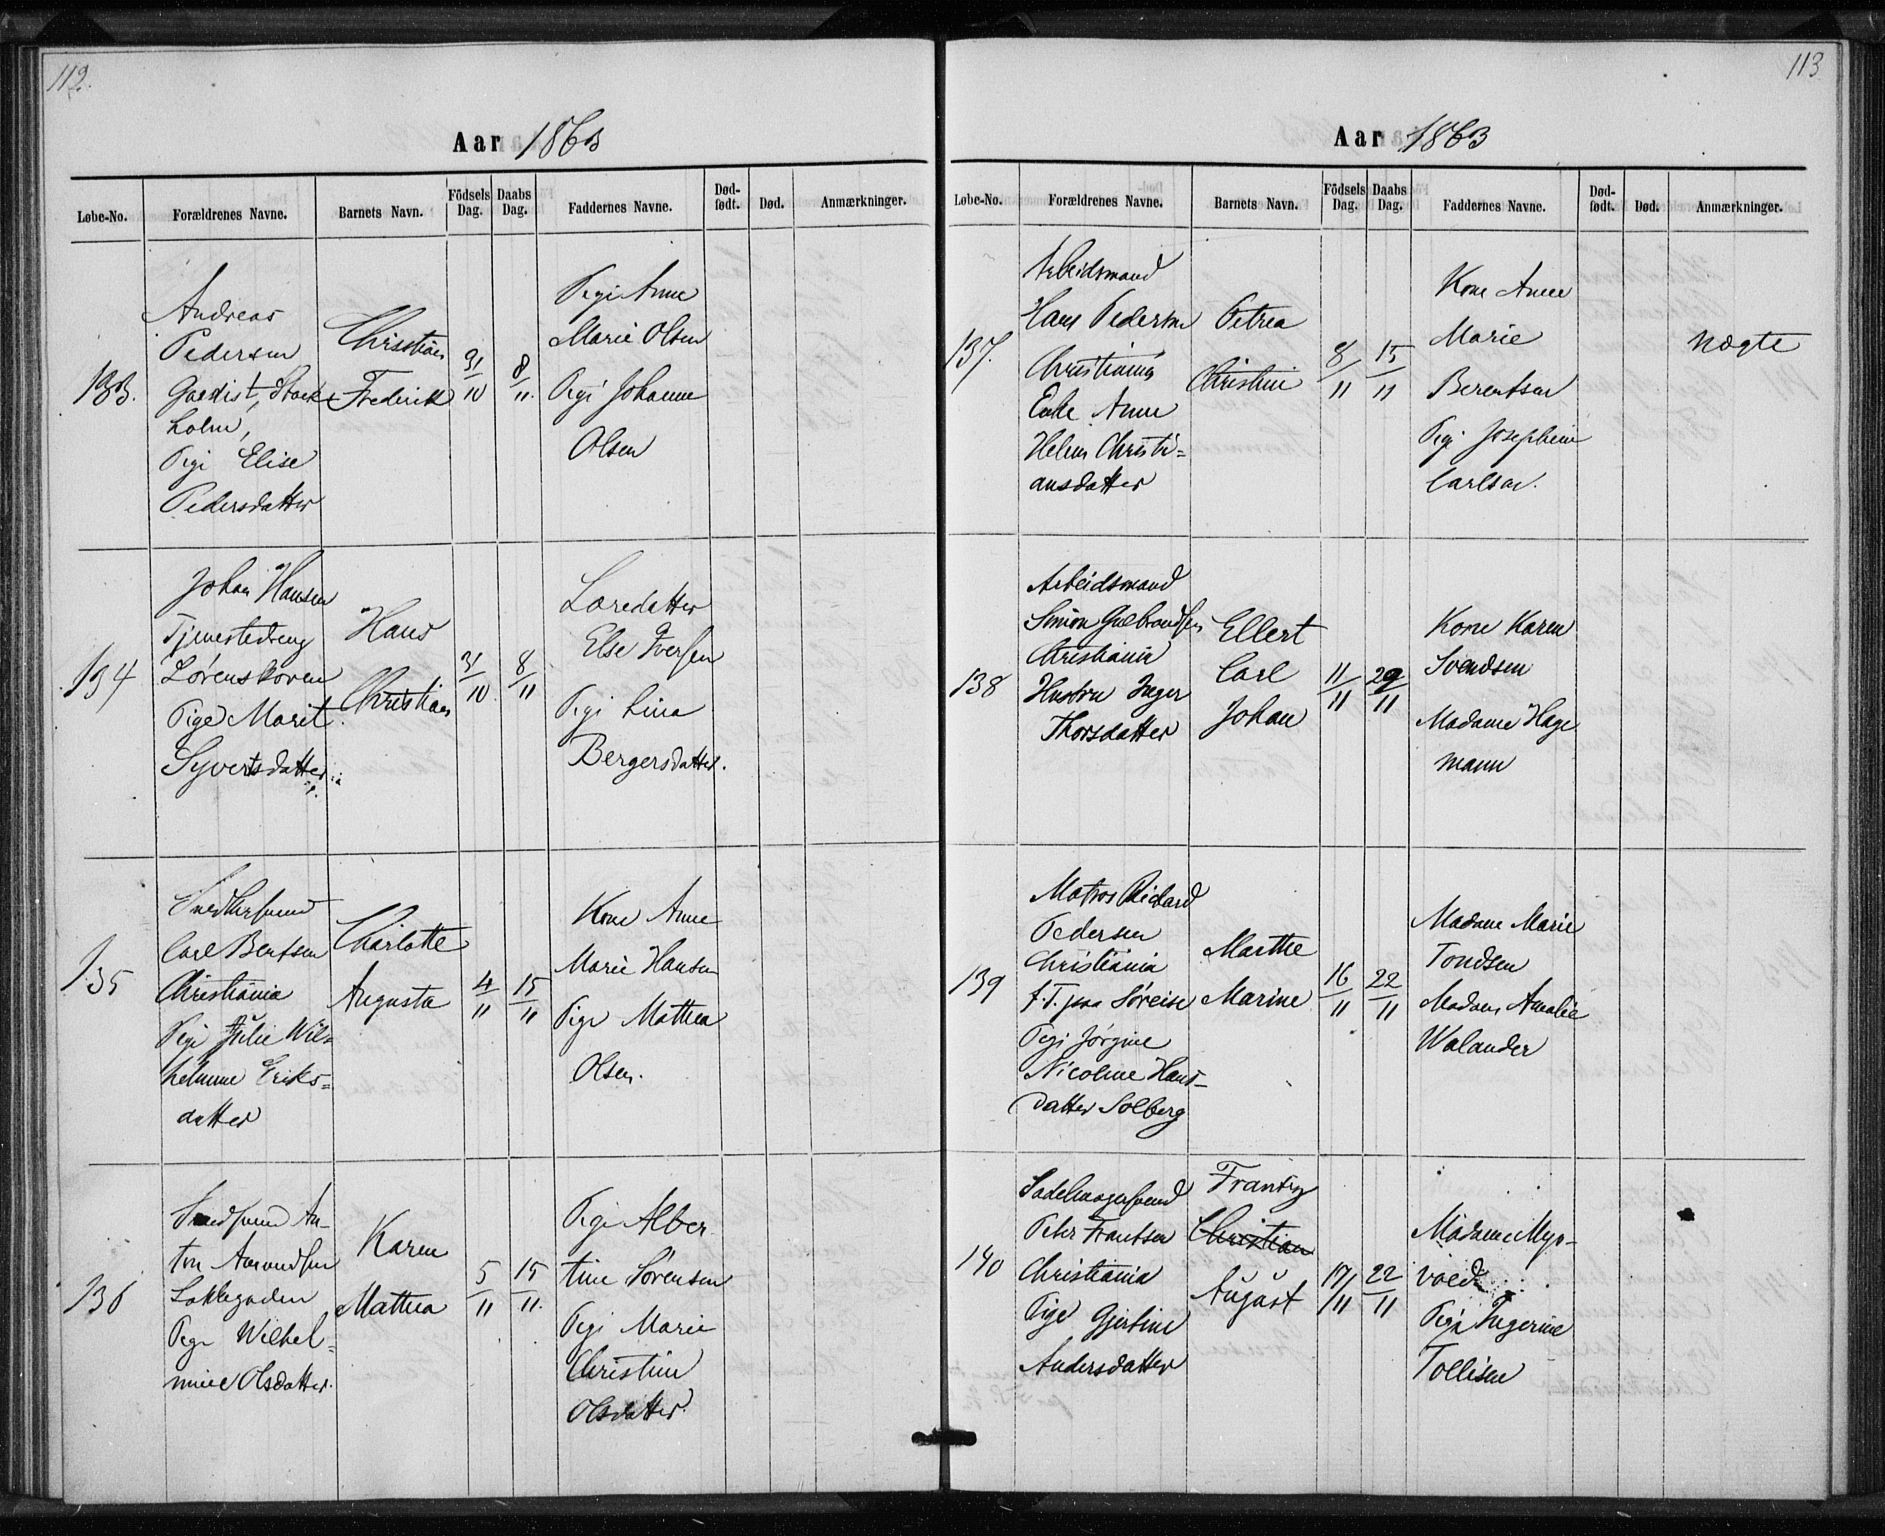 112.
Aar 1863
Løbe-No. Forældrenes Navne. Barnets Navn. Födsels Dag. Daabs Dag. Faddernes Navne. Död-födt. Død. Anmærkninger.
133.
Andreas
Pedersen
Stock
holm,
Pige Elise
Pedersdatter
Christian
Frederik
31/10
8/11.
Pige Anne
Marie Olsen
Pige Johanne
Olsen
134
Johan Hansen
Tjenestedreng
Lørenskoven
Pige Marit
Syvertsdatter
Hans
Christian
31/10
8/11
Else Iversen
Pige Lina
Bergersdatter.
135
Snedkersvend
Carl Bentsen
Christiania
Pige Julie Wil=
helmine Eriks=
datter
Charlotte
Augusta
4/11
15/11
Kone Anne
Marie Hansen
Pige Mathea
Olsen.
136
Smedsvend An-
ton Amundsen
Lakkegaden
Pige Wilhel=
mine Olsdatter.
Karen
Mathea
5/11
15/11.
Pige Alber
tine Sørensen
Pige Marie
Christine
Olsdatter.
113
Aar 1863
Løbe-No. Forældrenes Navne. Barnets Navn. Födsels Dag. Daabs Dag. Faddernes Navne. Död-födt. Død. Anmærkninger.
137.
Arbeidsmand
Hans Pedersen
Christiania
Enke Anne
Helene Christi=
ansdatter
Petrea
Christine
8/11
15/11
Kone Anne
Marie
Berentsen
Pige Josephine
Carlsen.
nægte
138
Arbeidsmand
Simon Gulbrandsen
Christiania
Hustru Inger
Thorsdatter
Ellert
Carl
Johan
11/11
29/11
Kone Karen
Svendsen
Madame Hage
mann
139
Matros Richard
Pedersen
Christiania
f. T. paa Søreise
Pige Jørgine
Nicoline Hans-
datter Solberg
Marthe
Marine
16/11
22/11
Madam Marie
Tondsen
Madam Amalie
Walander
140
Sadelmagersvend
Peter Frantsen
Christiania
Pige Gjertine
Andersdatter
Frantz
Christian
August
17/11
22/11
Madame Myr-
vold
Pige Ingerine
Tollisen